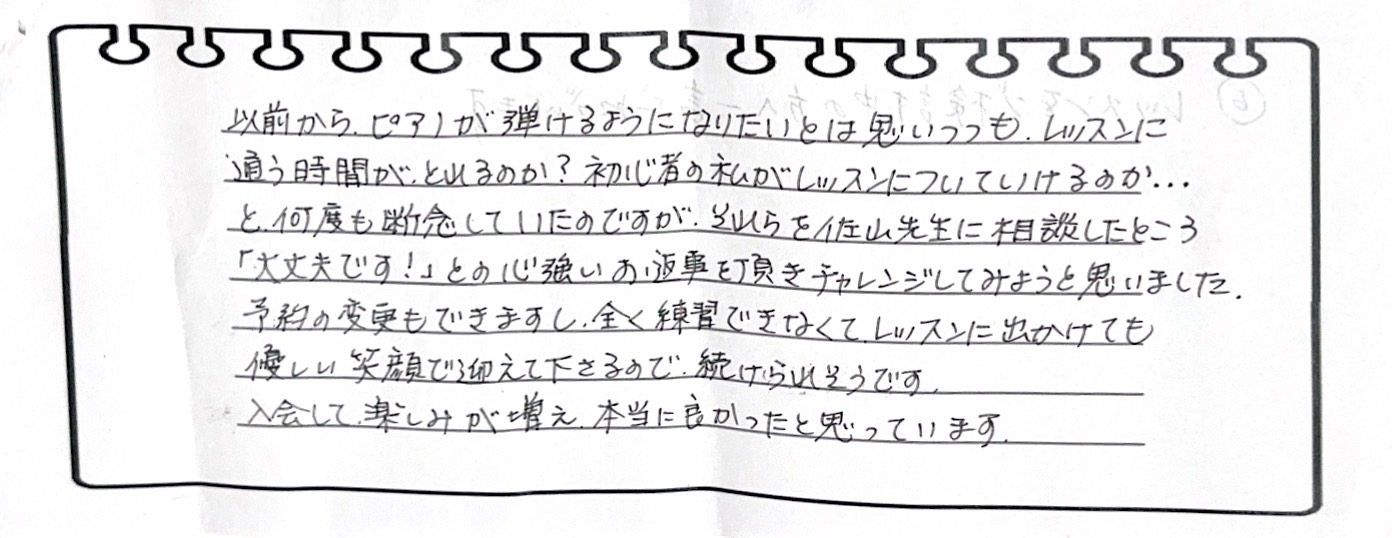 以前から、ピアノが弾けるようになりたいとは思いつつも、レッスンに
通う時間が、とれるのか？初心者の私がレッスンについていけるのか…
と、何度も断念していたのですが、それらを佐山先生に相談したところ
「大丈夫です！」との心強いお返事を頂きチャレンジしてみようと思いました。
予約の変更もできますし、全く練習できなくて、レッスンに出かけても
優しい笑顔で迎えて下さるので、続けられそうです。
入会して、楽しみが増え、本当に良かったと思っています。